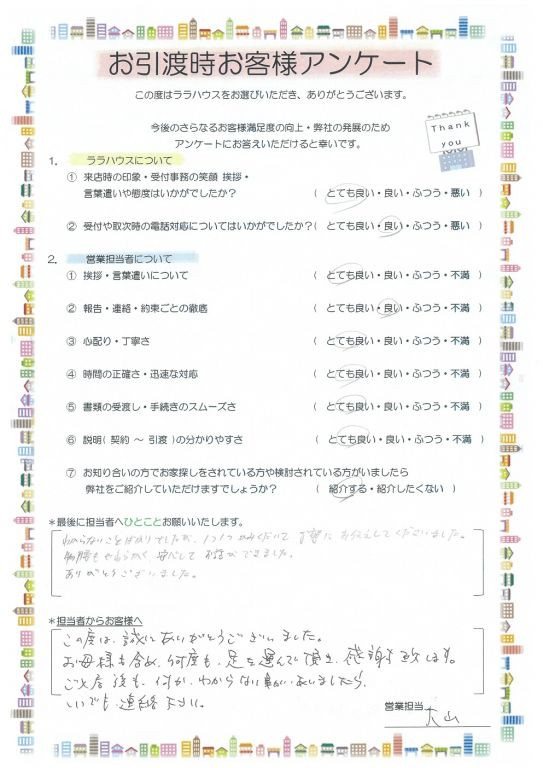 お引渡時お客様アンケート
この度はララハウスをお選びいただき、ありがとうございます。
今後のさらなるお客様満足度の向上・弊社の発展のため
アンケートにお答えいただけると幸いです。
Thank
you
1. ララハウスについて
① 来店時の印象・受付事務の笑顔 挨拶・
言葉遣いや態度はいかがでしたか? ( とても良い・良い・ふつう・悪い )
② 受付や取次時の電話対応についてはいかがでしたか?( とても良い・良い・ふつう・悪い )
2. 営業担当者について
① 挨拶・言葉遣いについて ( とても良い・良い・ふつう・不満 )
② 報告・連絡・約束ごとの徹底 ( とても良い・良い・ふつう・不満 )
③ 心配り・丁寧さ ( とても良い・良い・ふつう・不満 )
④ 時間の正確さ・迅速な対応 ( とても良い・良い・ふつう・不満 )
⑤ 書類の受渡し・手続きのスムーズさ ( とても良い・良い・ふつう・不満 )
⑥ 説明( 契約 ~ 引渡 )の分かりやすさ ( とても良い・良い・ふつう・不満 )
⑦ お知り合いの方でお家探しをされている方や検討されている方がいましたら
弊社をご紹介していただけますでしょうか? ( 紹介する・紹介したくない )
*最後に担当者へひとことお願いいたします。
わからないことばかりでしたが、1つ1つかみくだいて丁寧にお伝えしてくださいました。
物腰もやわらかく、安心してお話ができました。
ありがとうございました。
*担当者からお客様へ
この度は、誠にありがとうございました。
お母様も含め、何度も、足を運んで頂き、感謝致します。
ご入居後も、何か、わからない事がありましたら、
いつでも連絡下さい。
営業担当 大山